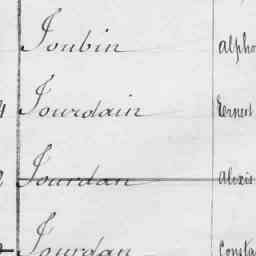 Joubin Alpho
4 Jourdain Ernest
Jourdan Alexis
Jourdan Consta